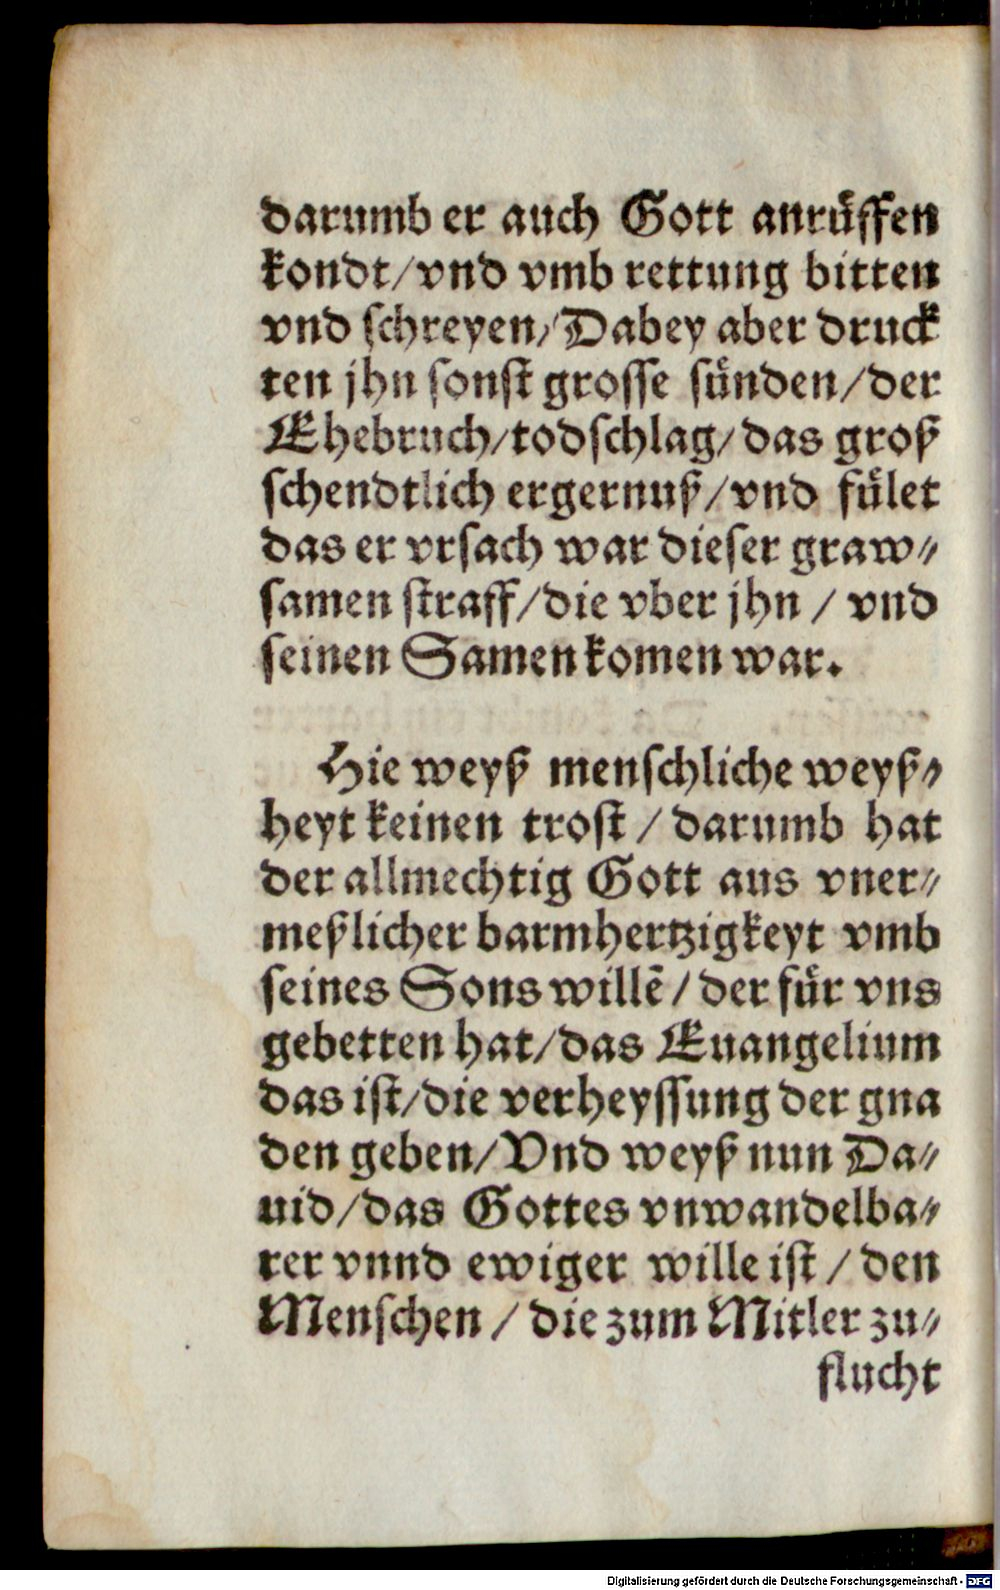 darumb er auch Gott anrüffen
kondt/vnd vmb rettung bitten
vnd schreyen/Dabey aber druck
ten jhn sonst grosse sünden/der
Ehebruch/todschlag/das groß
schendtlich ergernuß/vnd fület
das er vrsach war dieser graw⸗
samen straff/die vber jhn / vnd
seinen Samen komen war.
Hie weyß menschliche weyß⸗
heyt keinen trost / darumb hat
der allmechtig Gott aus vner⸗
meßlicher barmhertzigkeyt vmb
seines Sons willẽ / der für vns
gebetten hat/das Euangelium
das ist/die verheyssung der gna
den geben/Vnd weyß nun Da⸗
uid/das Gottes vnwandelba⸗
rer vnnd ewiger wille ist / den
Menschen / die zum Mitler zu⸗
flucht
Digitalisierung gefördert durch die Deutsche Forschungsgemeinschaft - DFG